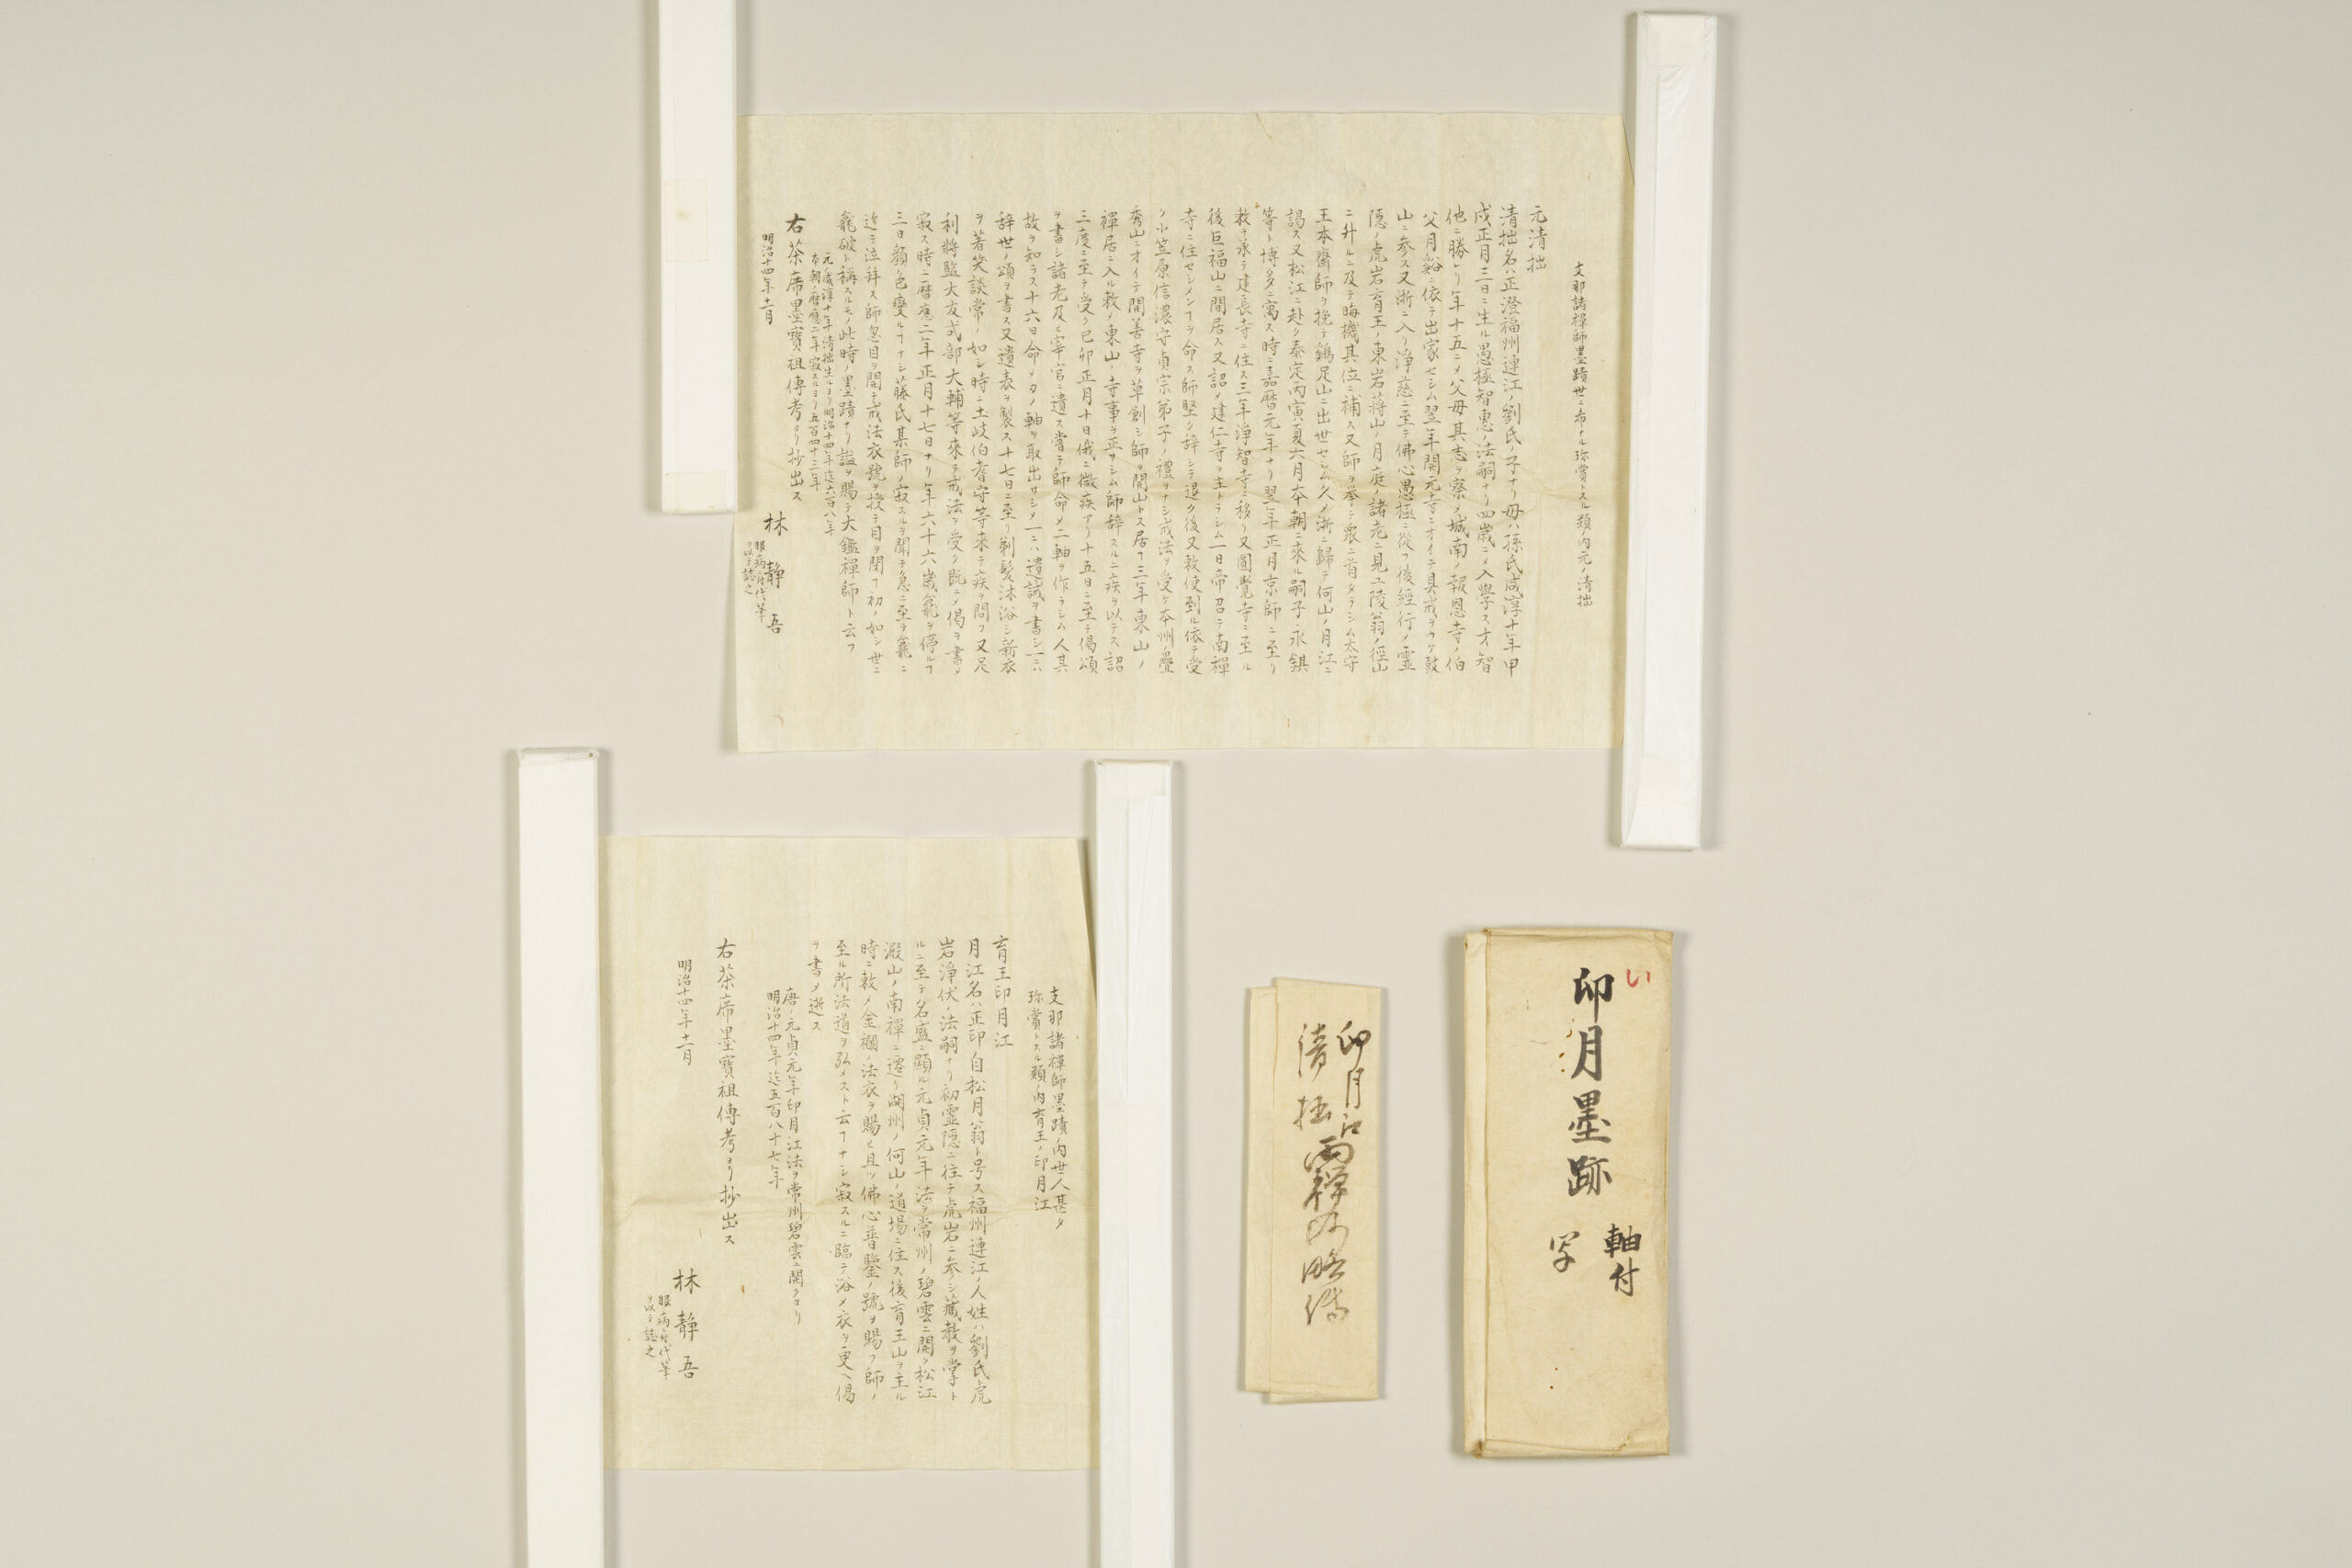 支那諸禪師墨蹟世ニ希ナル珎賞トスル類ノ内元ノ清拙
元清拙
清拙名ハ正澄福州連江ノ劉氏ノ子ナリ母ハ孫氏咸淳十年甲
戌正月三日ニ生ル愚極智惠ノ法嗣ナリ四歳ニメ入學ス才智
他ニ勝レリ年十五ニメ父母其志ヲ察メ城南ノ報恩寺ノ伯
父月谿ニ依テ出家セシム翌年開元寺ニオイテ具戒ヲウケ鼓
山ニ参ス又浙ニ入リ淨慈ニ至テ佛心愚極ニ從フ後經行ノ霊
隠ノ虎岩育王ノ東岩蒋山ノ月庭ノ諸老ニ見ユ陵翁ノ徑山
ニ升ルニ及テ晦機其位ニ補ス又師ヲ挙テ衆ニ首タラシム太守
王本齋師ヲ挽テ鶏足山ニ出世セシム久メ浙ニ歸テ何山ノ月江ニ
謁ス又松江ニ赴ク泰定丙寅夏六月本朝ニ來ル嗣子永錤
等ト博多ニ寓ス時ニ嘉暦元年ナリ翌年正月京師ニ至リ
敕ヲ承テ建長寺ニ住ス三年淨智寺ニ移リ又圓覺寺ニ至ル
後巨福山ニ間居ス又詔メ建仁寺ヲ主トラシム一日帝召テ南禪
寺ニ住セシメンヿヲ命ス師堅ク辞シテ退ク後又敕使到ル依テ受
ク小笠原信濃守貞宗弟子ノ禮ヲナシ戒法ヲ受ケ本州ノ疊
秀山ニオイテ開善寺ヲ草創シ師ヲ開山トス居ヿ三年東山ノ
禪居ニ入ル敕メ東山ノ寺事ヲ正サシム師辞スルニ疾ヲ以テス詔
三度ニ至テ受ク己卯正月十日俄ニ微疾アリ十五日ニ至テ偈頌
ヲ書シ諸老及ヒ宰官ニ遺ス嘗テ師命メ二軸ヲ作ラシム人其
故ヲ知ラス十六日命メカノ軸ヲ取出サシメ一ニハ遺誡ヲ書シ一ニハ
辞世ノ頌ヲ書ス又遺表ヲ製ス十七日ニ至リ剃髪沐浴シ新衣
ヲ著笑談常ノ如シ時ニ土岐伯耆守等來テ疾ヲ問フ又足
利將監大友式部大輔等來テ戒法ヲ受ク既ニメ偈ヲ書メ
寂ス時ニ暦應二年正月十七日ナリ年六十六歳龕ヲ停ルヿ
三日顔色變ルヿナシ藤氏某師ノ寂スルヲ聞テ急ニ至テ龕ニ
近テ泣拜ス師忽目ヲ開テ戒法衣號ヲ授テ目ヲ閉ヿ初ノ如シ世ニ
龕破ト稱スルモノ此時ノ墨蹟ナリ謚ヲ賜テ大鑑禪師ト云フ
元ノ咸淳十年清拙生ルヨリ明治十四年迄六百八年
本朝ノ暦應二年寂スルヨリ五百四十三年
右茶席墨寶祖傳考ヨリ抄出ス
明治十四年十二月
林靜吾
眼病ニ付代筆
ヲ以テ誌之
支那諸禪師墨蹟ノ内世人甚タ
珎賞トスル類ノ内育王ノ印月江
育王印月江
月江名ハ正印自松月翁ト号ス福州連江ノ人姓ハ劉氏虎
岩淨伏ノ法嗣ナリ初霊隠ニ往テ虎岩ニ参シ藏教ヲ掌ト
ルニ至テ名盛ニ顯ル元貞元年法ヲ常州ノ碧雲ニ開ク松江
澱山ノ南禪ニ遷リ湖州ノ何山ノ道場ニ住ス後育王山ヲ主ル
時ニ敕メ金襴ノ法衣ヲ賜ヒ且ツ佛心普鑒ノ號ヲ賜フ師ノ
至ル所法道ヲ弘メスト云ヿナシ寂スルニ臨テ浴メ衣ヲ更ヘ偈
ヲ書メ逝ス
唐ノ元貞元年印月江法ヲ常州碧雲ニ開クヨリ
明治十四年迄五百八十七年
右茶席墨寶祖傳考ヨリ抄出ス
明治十四年十二月
林靜吾
眼病ニ付代筆
ヲ以テ誌之
印月江
清拙
両禅师略傳
い
印月墨跡
軸付
写